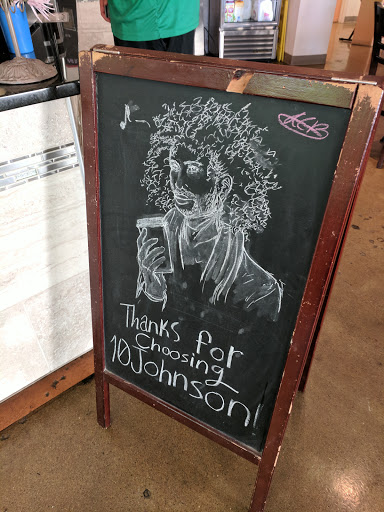 Thanks for
Choosing
10Johnson!